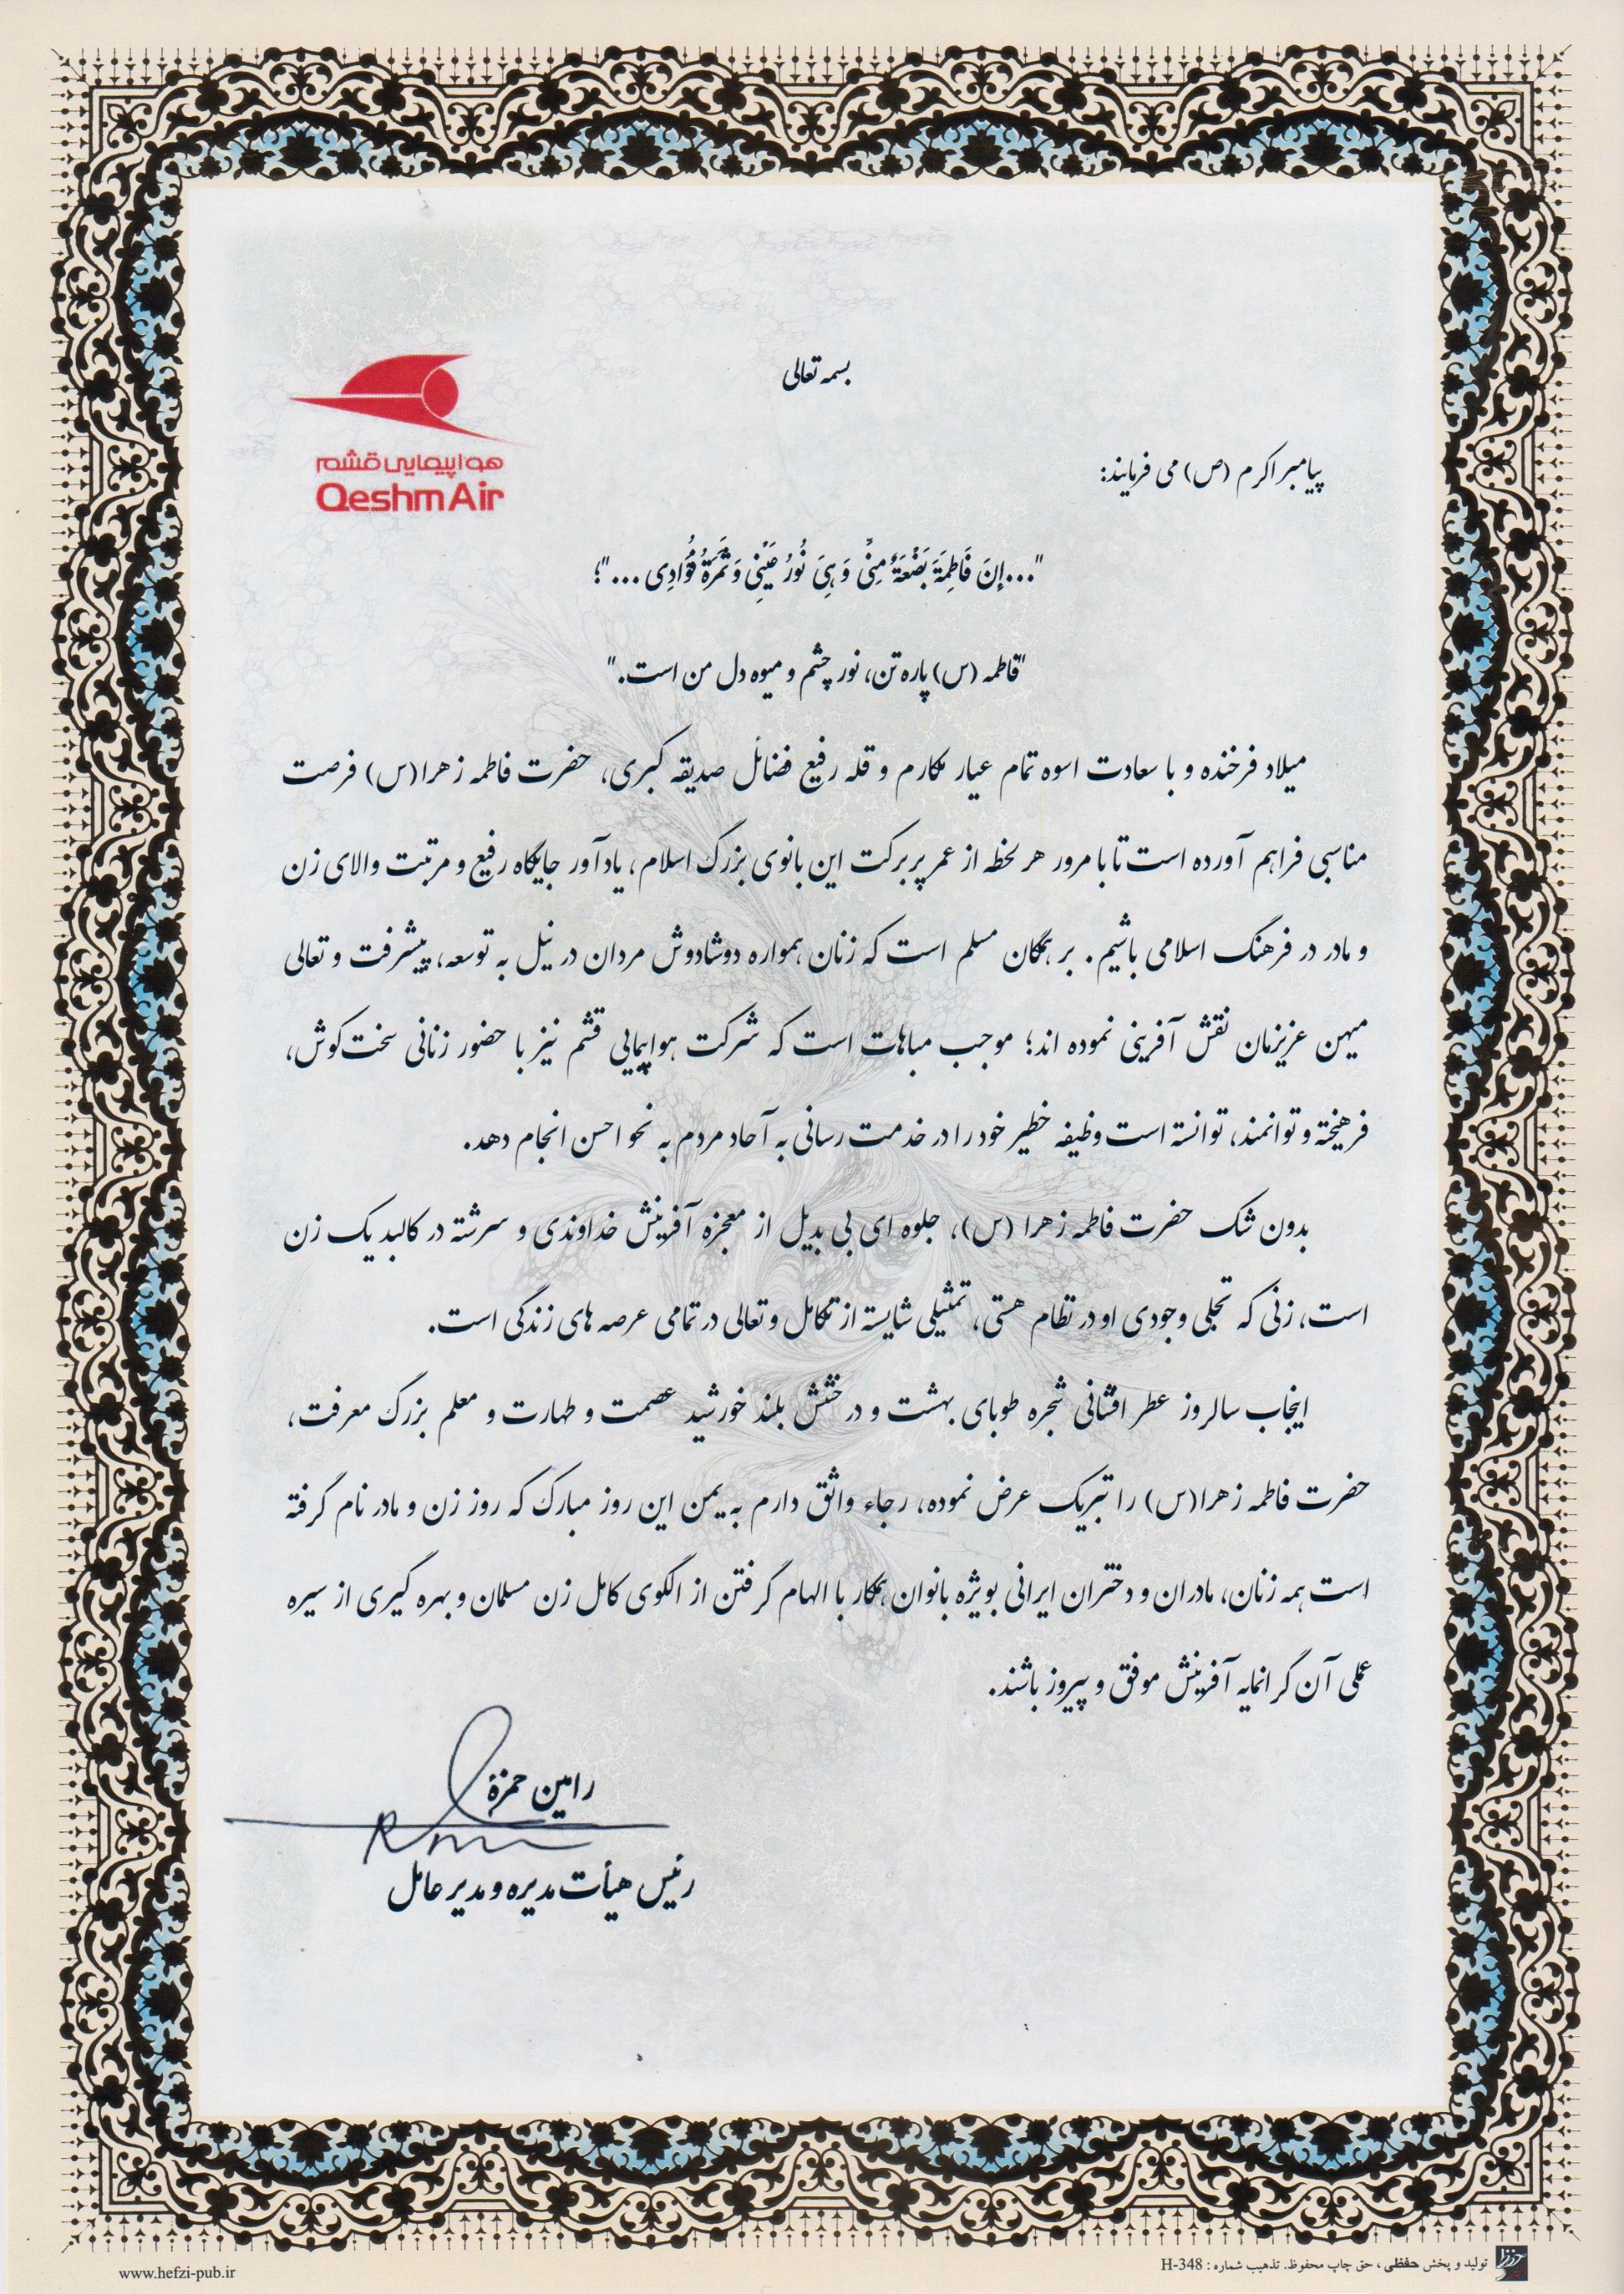 بسمه تعالی
هواپیمایی قشم
Qeshm Air
پیامبر اکرم (ص) می فرمایند:
"...إنَ فَاطِمَةَ بَضْعَةٌ مِنِّی وَ هِیَ نُورُ عَیْنِی وَ ثَمَرَةُ فُؤَادِی ..."؛
"فاطمه (س) پاره تن، نور چشم و میوه دل من است."
میلاد فرخنده و با سعادت اسوه تمام عیار مکارم و قله رفیع فضائل صدیقه کبری، حضرت فاطمه زهرا(س) فرصت
مناسبی فراهم آورده است تا با مرور هر لحظه از عمر پربرکت این بانوی بزرگ اسلام، یادآور جایگاه رفیع و مرتبت والای زن
و مادر در فرهنگ اسلامی باشیم. بر همگان مسلم است که زنان همواره دوشادوش مردان در نیل به توسعه، پیشرفت و تعالی
میهن عزیزمان نقش آفرینی نموده اند؛ موجب مباهات است که شرکت هواپیمایی قشم نیز با حضور زنانی سخت‌کوش،
فرهیخته و توانمند، توانسته است وظیفه خطیر خود را در خدمت رسانی به آحاد مردم به نحو احسن انجام دهد.
بدون شک حضرت فاطمه زهرا (س)، جلوه ای بی بدیل از معجزه آفرینش خداوندی و سرشته در کالبد یک زن
است، زنی که تجلی وجودی او در نظام هستی، تمثیلی شایسته از تکامل و تعالی در تمامی عرصه های زندگی است.
اینجانب سالروز عطر افشانی شجره طوبای بهشت و درخشش بلند خورشید عصمت و طهارت و معلم بزرگ معرفت،
حضرت فاطمه زهرا(س) را تبریک عرض نموده، رجاء واثق دارم به یمن این روز مبارک که روز زن و مادر نام گرفته
است همه زنان، مادران و دختران ایرانی بویژه بانوان همکار با الهام گرفتن از الگوی کامل زن مسلمان و بهره گیری از سیره
عملی آن گرانمایه آفرینش موفق و پیروز باشند.
رامین حمزۀ
رئیس هیأت مدیره و مدیر عامل
تولید و پخش حفظی، حق چاپ محفوظ. تذهیب شماره : H-348
www.hefzi-pub.ir